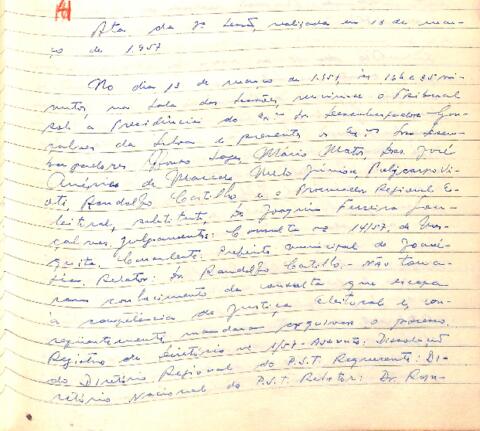 Ata da 7ª Sessão, realizada em 13 de mar-
ço de 1957
No dia 13 de março de 1957, às 16h e 35 mi-
nutos, na Sala das Sessões reuniu-se o Tribunal
sob a Presidência do Exmo Sr. Desembargador Gon-
çalves da Silva e presentes os Exmos Srs. Desem-
bargadores Lopes Mário Matos Drs. José
Américo de Macedo Melo Júnior, Policarpo Vi-
oti, Randolfo Castilho, e o Procurador Regional E-
leitoral, substituto, Dr. Joaquim Ferreira Gon-
çalves, Julgamentos: Consulta nº 14/57, de
Consulente: Prefeito municipal de
Relator: Dr. Randolfo Castilho - Não toma-
ram conhecimento da consulta que escapa
à competência da Justiça Eleitoral e con-
sequentemente mandaram arquivar o processo.
Registro de Diretório nº 1/57 - Assunto: Dissolução
do Diretório Regional do P.S.T. Requerente: Di-
retório Nacional do P.S.T. Relator: Dr.